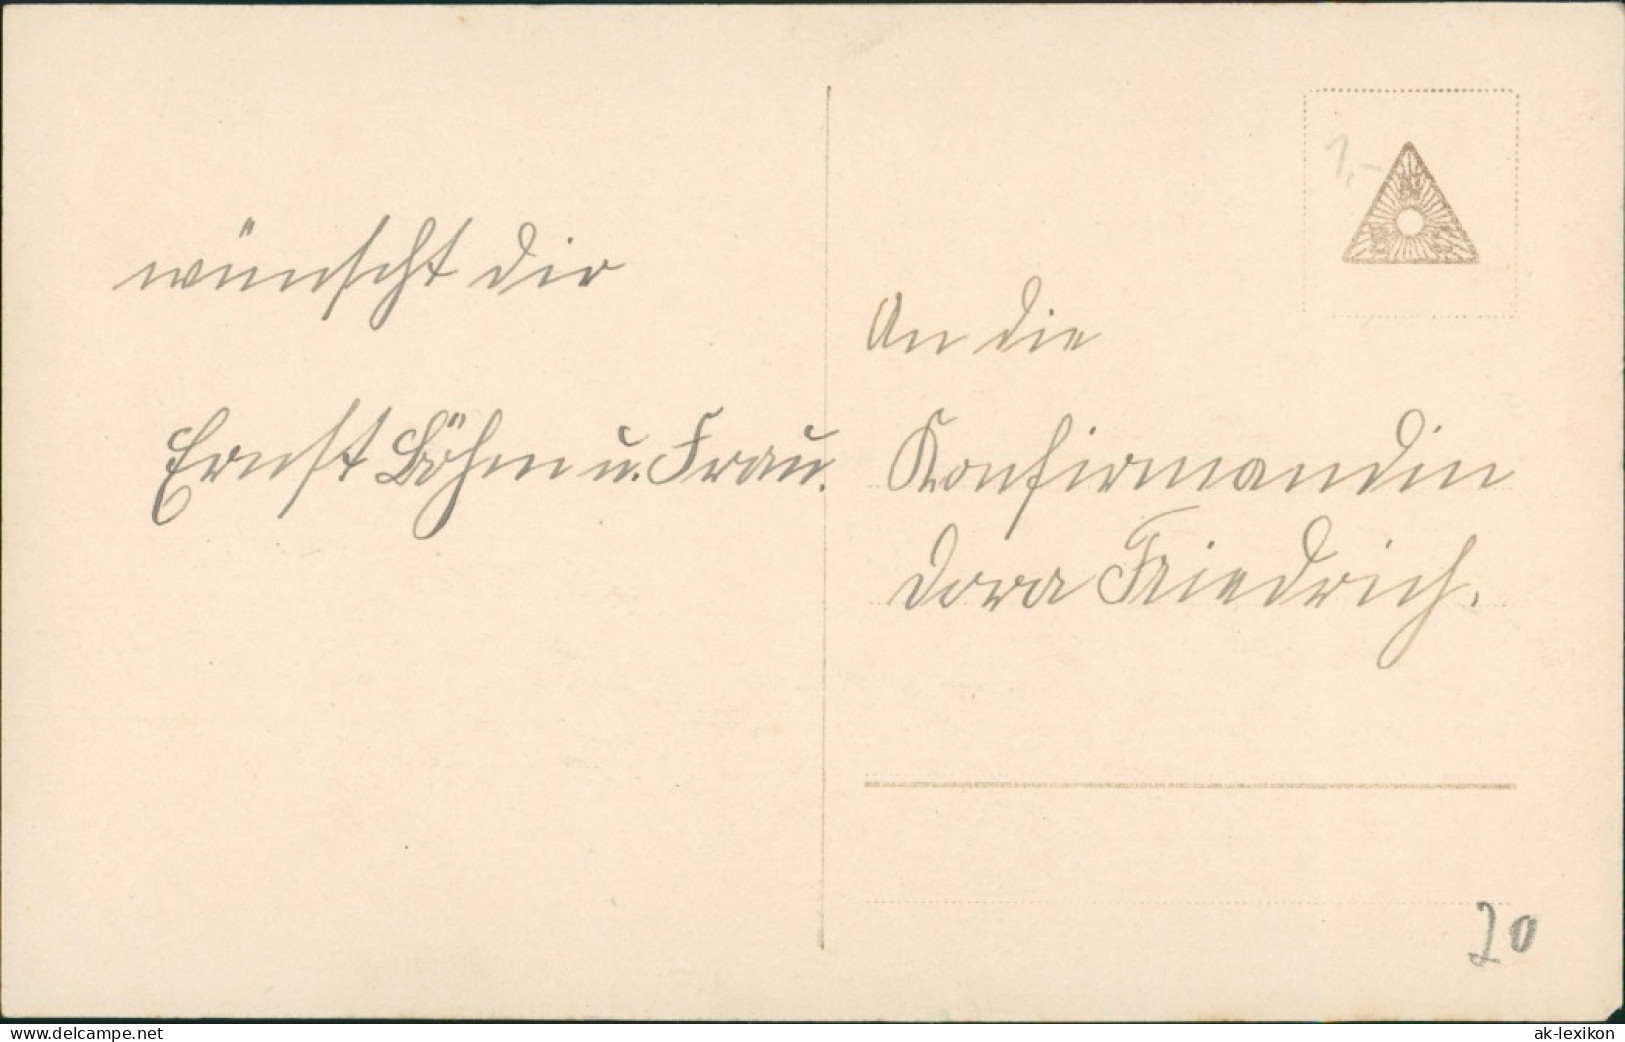 wünscht dir
Ernst Böhm u. Frau.
1,-
An die
Konfirmandin
Dora Friedrich.
20
www.delcampe.net
ak-lexikon